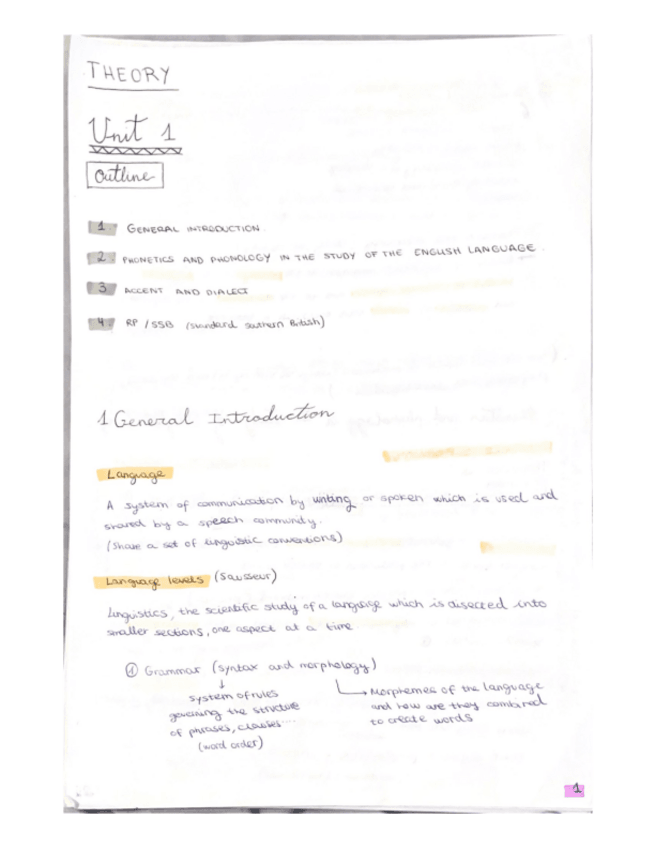 THEORY
Unit 1
Outline
1. GENERAL INTRODUCTION.
2. PHONETICS AND PHONOLOGY IN THE STUDY OF THE ENGLISH LANGUAGE.
3 ACCENT AND DIALECT
4. RP / SSB (standard southern British)
1 General Introduction
Language
A system of communication by writing or spoken which is used and
shared by a speech community.
(Share a set of linguistic conventions)
Language levels (Sausseur)
Linguistics, the scientific study of a language which is disected into
smaller sections, one aspect at a time.
① Grammar (syntax and morphology)
↓ system of rules
governing the structure
of phrases, clauses...
(word order)
→ Morphemes of the language
and how are they combined
to create words
1